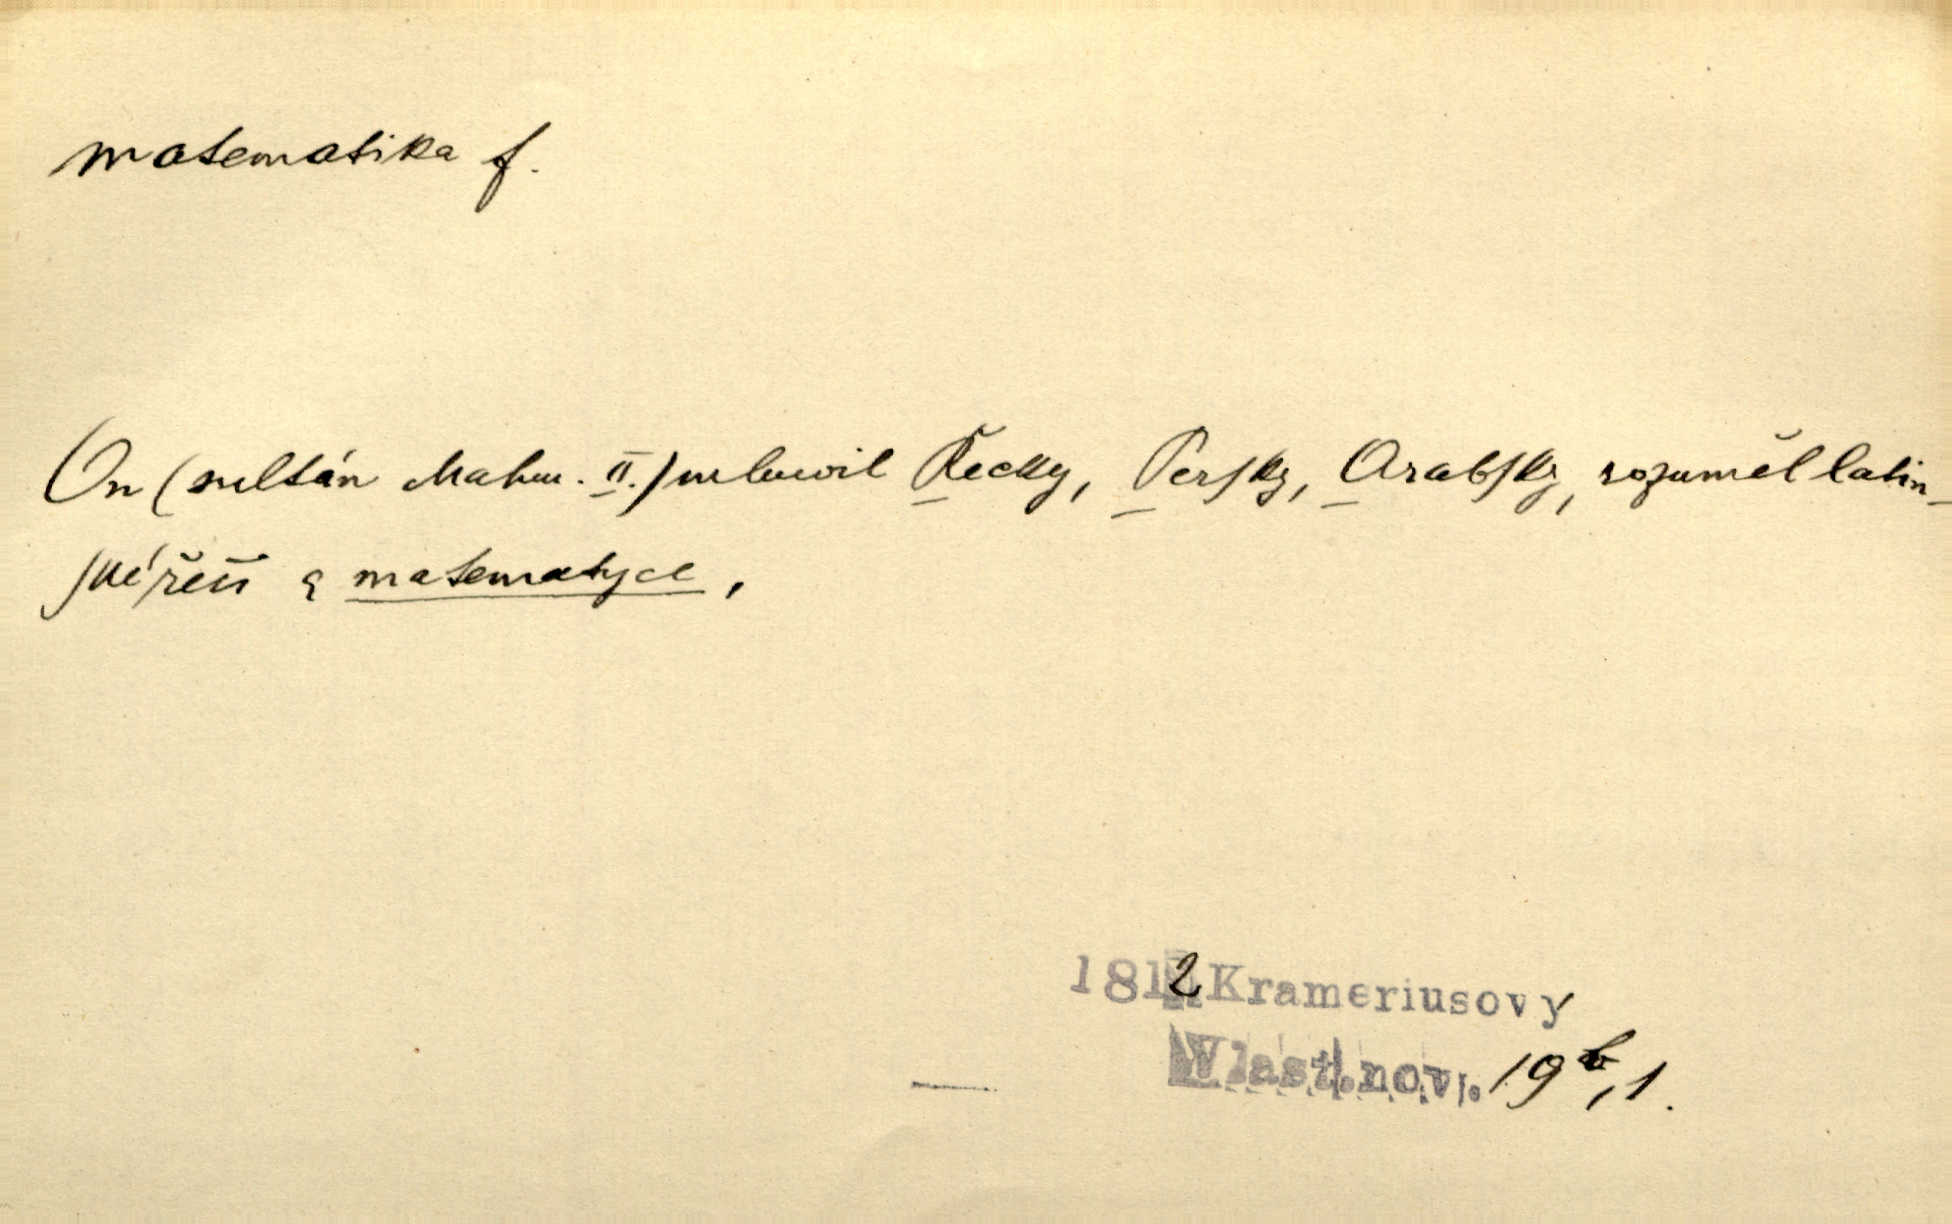 matematika f.
On (sultán Mahm. II.) mluwil Řecky, Perſky, Arabſky, rozuměl latin-
ſké řeči a matematyce,
1812 Krameriusovy
Wlast.nov. 19b, 1.